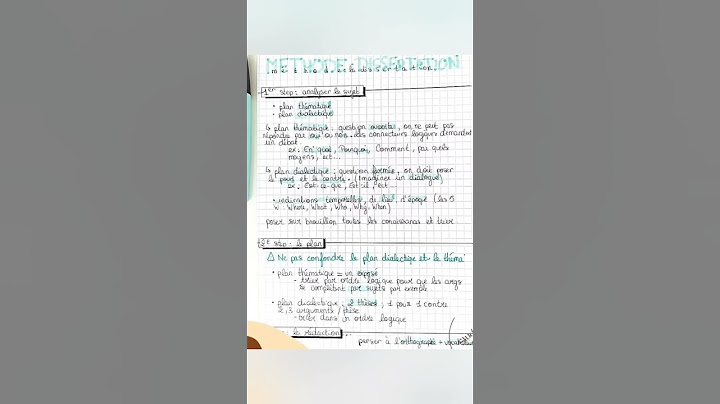 METHODE DISSERTATION
méthode de la dissertation.
1er step : analyser le sujet
• plan thématique
• plan dialectique
↳ plan thématique : question ouverte, on ne peut pas
répondre par oui ou non. des connecteurs logiques demandant
un débat.
ex : En quoi, Pourquoi, Comment, par quels
moyens, ect...
↳ plan dialectique : question fermée, on doit poser
le pour et le contre. (Imaginer un dialogue)
ex : Est-ce-que, Est-il, ect...
• indications temporelles, de lieu, d'époque (les 5
W : Where, What, Who, Why, When)
poser sur brouillon toutes les conaissances et trier
2e step : le plan
⚠ Ne pas confondre le plan dialectique et le théma
• plan thématique = un exposé
- trier par ordre logique pour que les args
se complètent par sujets par exemple
• plan dialectique : 2 thèses, 1 pour 1 contre
2, 3 arguments / thèse
- ordre dans un ordre logique
: la rédaction...
penser à l'orthographe + vocabulaire